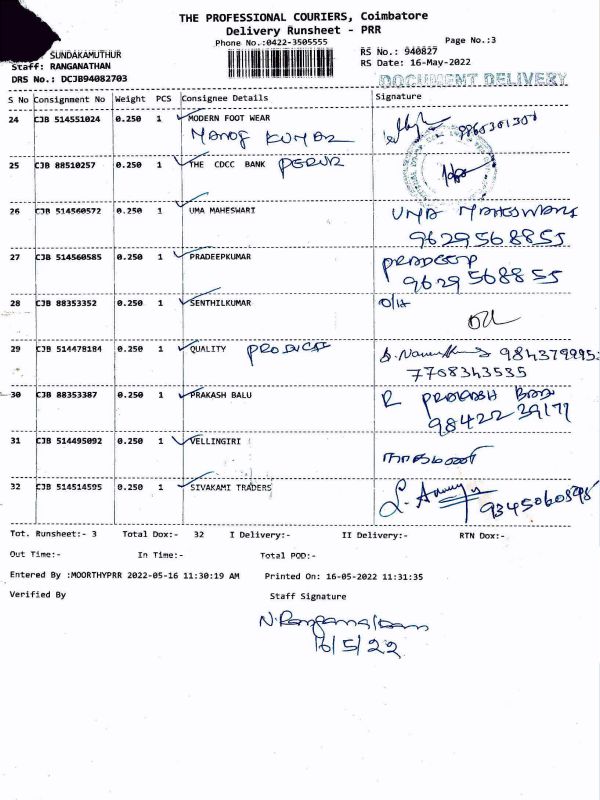 THE PROFESSIONAL COURIERS, Coimbatore
Delivery Runsheet - PRR
Phone No.:0422-3505555
Page No.:3
SUNDAKAMUTHUR
RS No.: 940827
Staff: RANGANATHAN
RS Date: 16-May-2022
DRS No.: DCJB94082703
DOCUMENT DELIVERY
S No Consignment No Weight PCS Consignee Details Signature
24 CJB 514551024 0.250 1 MODERN FOOT WEAR
MANOJ KUMAR
25 CJB 88510257 0.250 1 THE CDCC BANK PERUR
26 CJB 514560572 0.250 1 UMA MAHESWARI UMA MAHESWARI
9629568855
27 CJB 514560585 0.250 1 PRADEEPKUMAR PRADEEP
9629568855
28 CJB 88353352 0.250 1 SENTHILKUMAR
29 CJB 514478184 0.250 1 QUALITY PRODUCT
7708343535
30 CJB 88353387 0.250 1 PRAKASH BALU R
9842239177
31 CJB 514495092 0.250 1 VELLINGIRI
32 CJB 514514595 0.250 1 SIVAKAMI TRADERS
Tot. Runsheet:- 3 Total Dox:- 32 I Delivery:- II Delivery:- RTN Dox:-
Out Time:- In Time:- Total POD:-
Entered By :MOORTHYPRR 2022-05-16 11:30:19 AM Printed On: 16-05-2022 11:31:35
Verified By Staff Signature
N. Ranganathan
16/5/22